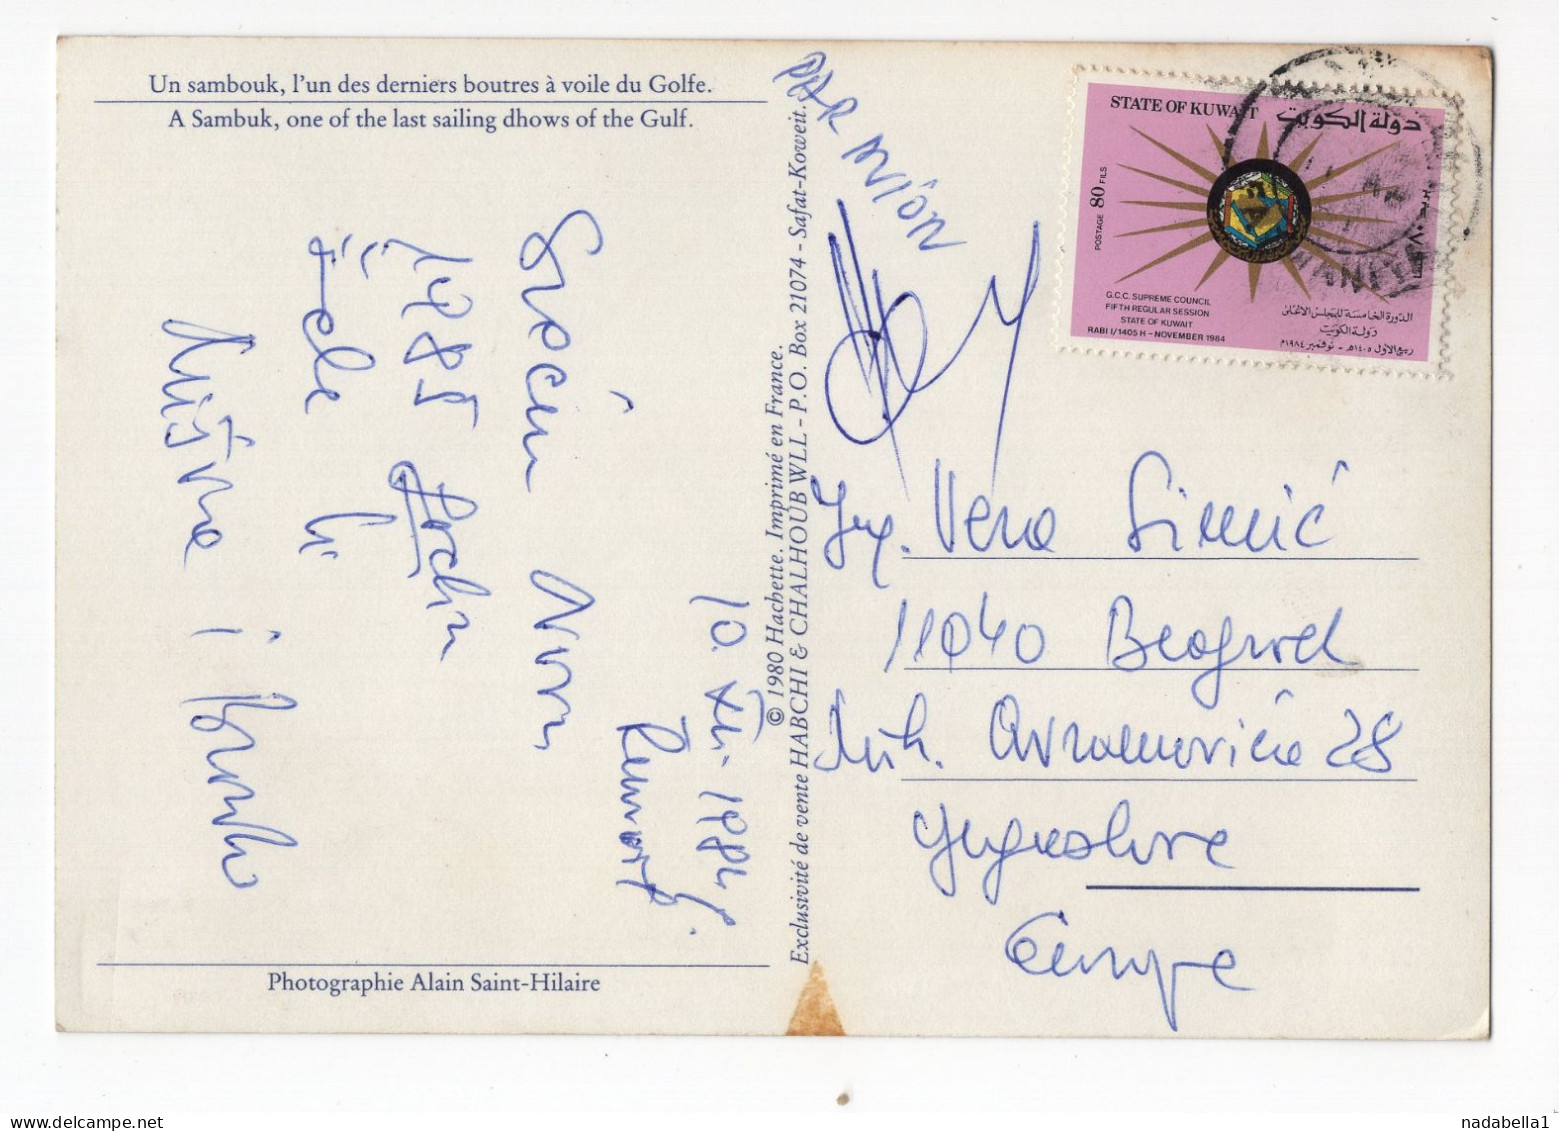 Un sambouk, l'un des derniers boutres à voile du Golfe.
A Sambuk, one of the last sailing dhows of the Gulf.
10. XII. 1984.
Srećnu Novu
1985 godinu
žele ti
i Branko
Photographie Alain Saint-Hilaire
© 1980 Hachette. Imprimé en France.
Exclusivité de vente HABCHI & CHALHOUB WLL - P.O. Box 21074 - Safat-Koweit.
PAR AVION
STATE OF KUWAIT دولة الكويت
POSTAGE 80 FILS
G.C.C. SUPREME COUNCIL
FIFTH REGULAR SESSION
STATE OF KUWAIT
RABI I/1405 H - NOVEMBER 1984
الدورة الخامسة للمجلس الأعلى
دولة الكويت
ربيع الأول ١٤٠٥هـ - نوفمبر ١٩٨٤م
Vera Simić
11040 Beograd
Avramovića 28
Jugoslavia
Europe
nadabella1